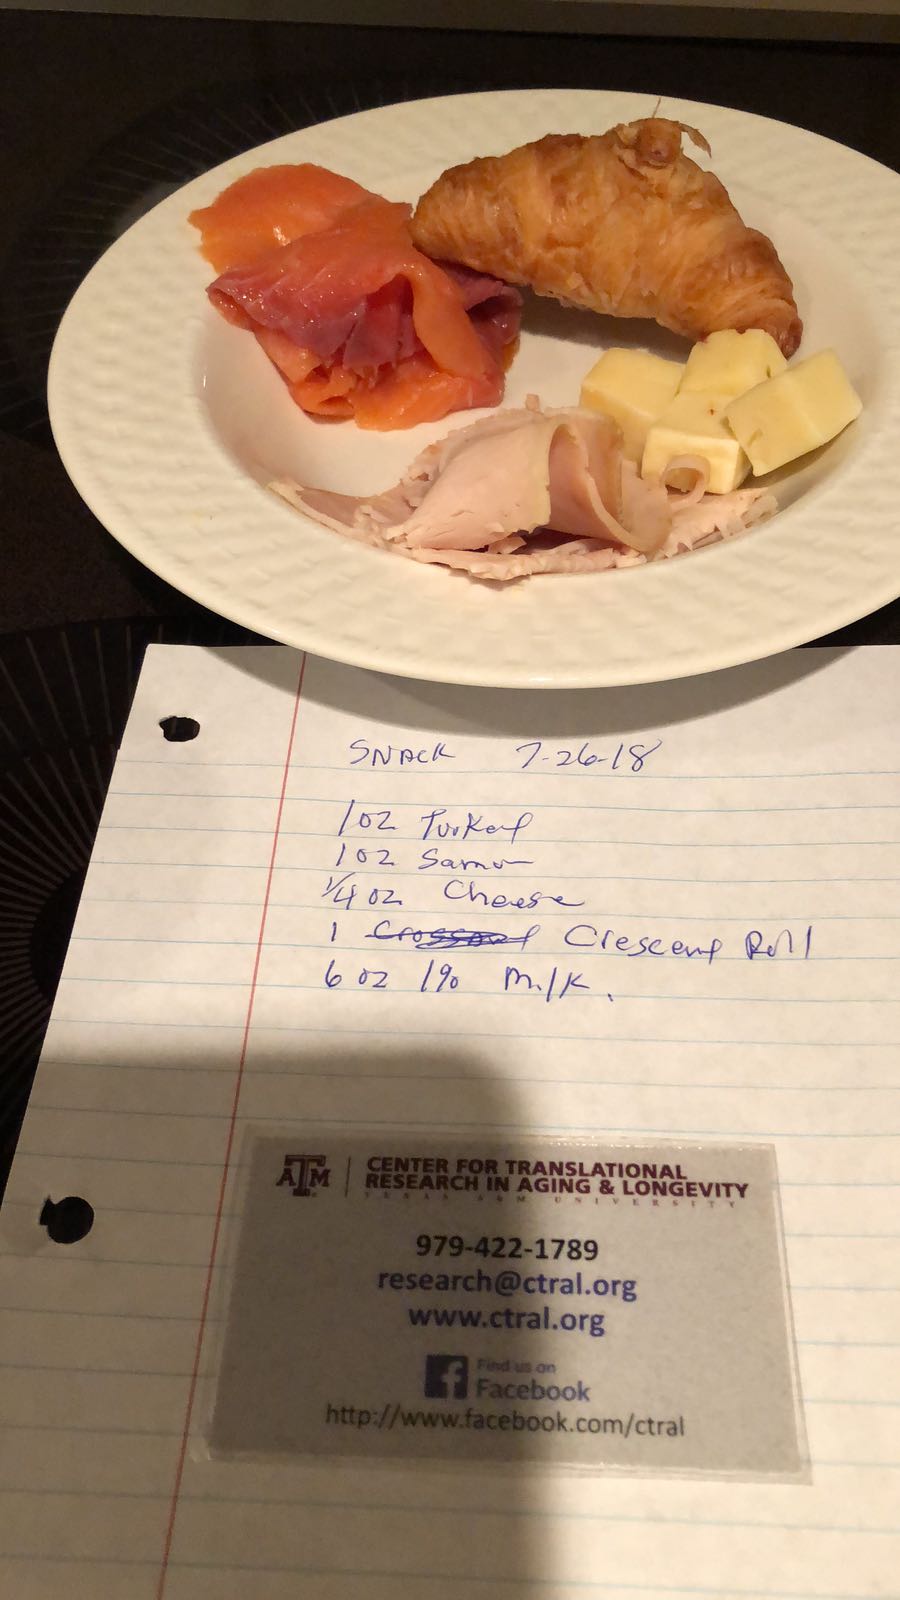 SNACK 7-26-18
1 oz Turkey
1 oz Samon
1/4 oz Cheese
1 Crescent Roll
6 oz 1% Milk.
ATM
CENTER FOR TRANSLATIONAL
RESEARCH IN AGING & LONGEVITY
TEXAS A&M UNIVERSITY
979-422-1789
research@ctral.org
www.ctral.org
f Find us on
Facebook
http://www.facebook.com/ctral